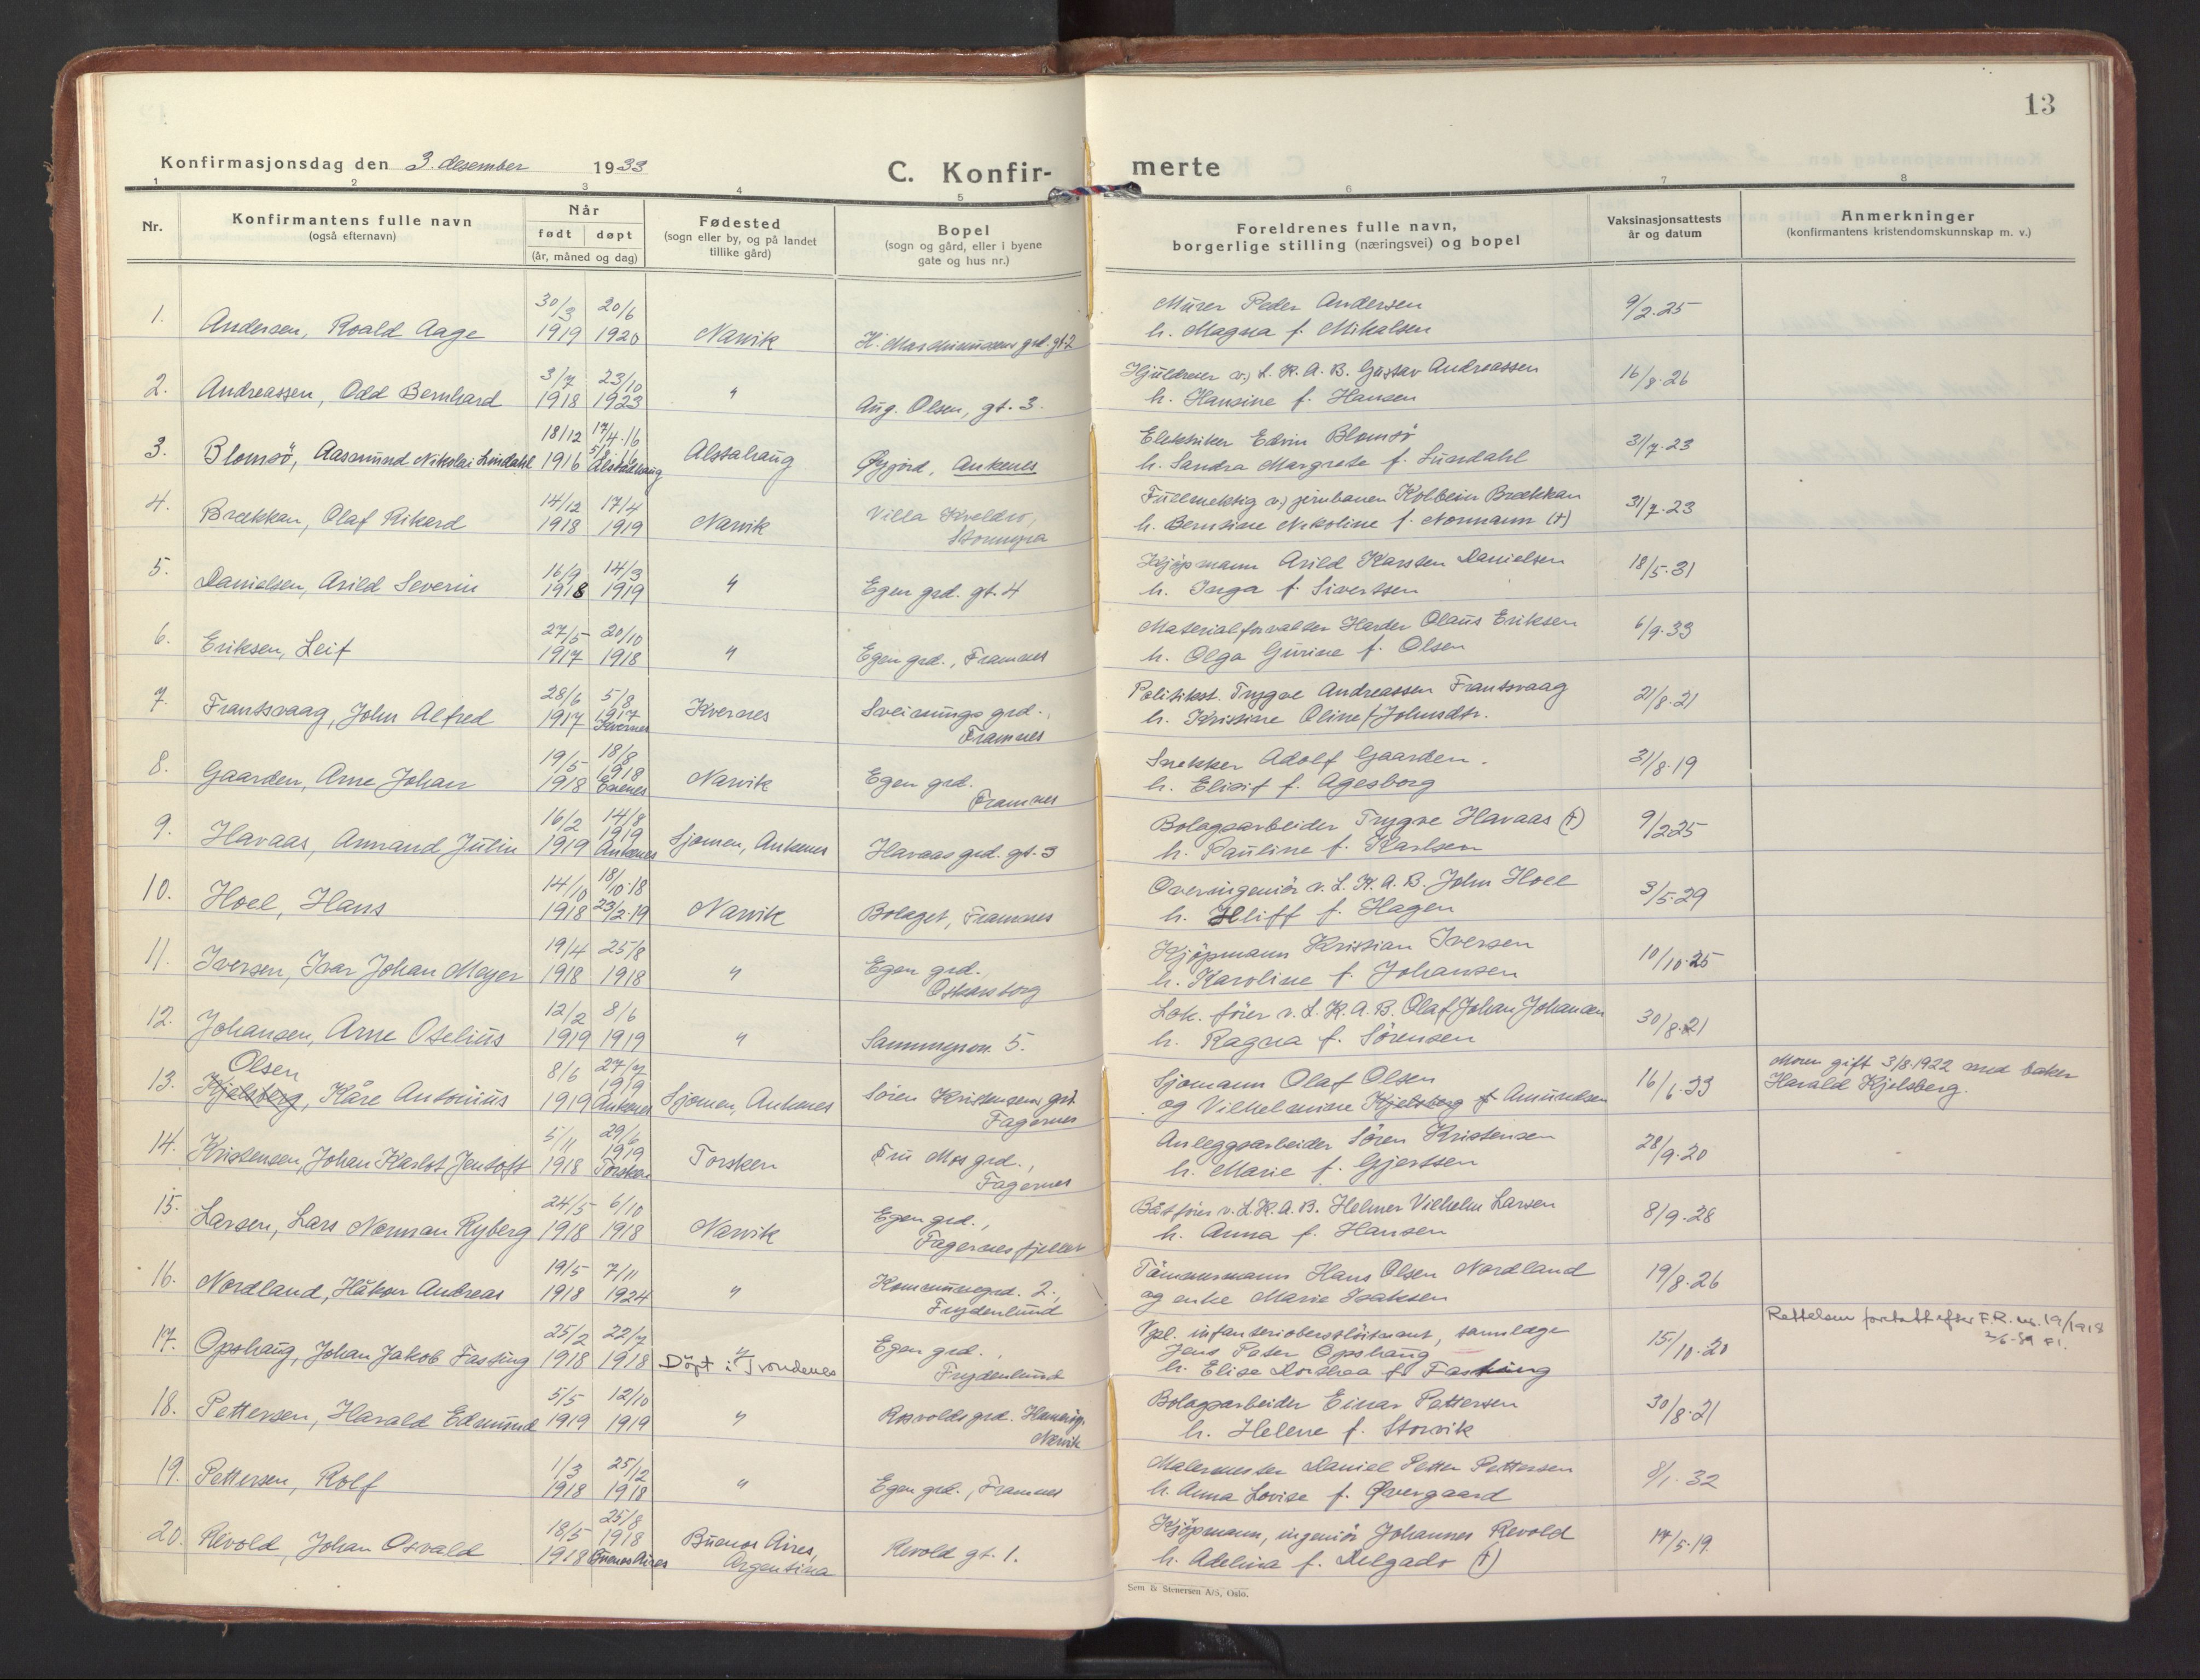 13
Konfirmasjonsdag den 3. desember 1933
C. Konfir-
merte
1 2 3 4 5 6 7 8
Nr.
Konfirmantens fulle navn
(også efternavn)
Når
født døpt
(år, måned og dag)
Fødested
(sogn eller by, og på landet
tillike gård)
Bopel
(sogn og gård, eller i byene
gate og hus nr.)
Foreldrenes fulle navn,
borgerlige stilling (næringsvei) og bopel
Vaksinasjonsattests
år og datum
Anmerkninger
(konfirmantens kristendomskunnskap m. v.)
30/3 20/6 Murer Peder Andersen 9/2.25
1. Andersen, Roald Aage 1919 1920 Narvik gt. 2 h. Magna f. Mikalsen
3/7 23/10 v) L.K.A.B. Gustav Andreassen 16/8.26
2. Andreassen, Odd Bernhard 1918 1923 " Aug. Olsen, gt. 3. h. Hansine f. Hansen
18/12 17/4.16 Elektriker Edvin Blomsö 31/7.23
3. Blomsö, Aasmund Nikolai Lindahl 1916 Alstahaug Alstahaug Øyjord, Ankenes h. Sandra Margrete f. Lündahl
14/12 17/4 Villa Fullmektig v) jernbanen Kolbein Brækkan 31/7.23
4. Brækkan, Olaf Rikard 1918 1919 Narvik h. Bernsine Nikoline f. Normann (†)
16/9 14/3 Kjöpmann Arild Karsten Danielsen 18/5.31
5. Danielsen, Arild Severin 1918 1919 " Egen grd. gt. 4 h. Inga f. Sivertsen
27/5 20/10 Materialforvalter Harder Olaus Eriksen 6/9.33
6. Eriksen, Leif 1917 1918 " Egen grd., Framnes h. Olga Gurine f. Olsen
28/6 5/8 1917 Sveinungs grd., Trygve Andreassen Frantsvaag 21/8.21
7. Frantsvaag, John Alfred 1917 Kvernes Kvernes Framnes h. Kristine Oline f. Johnsdtr.
19/5 18/8 1918 Egen grd. Snekker Adolf Gaarden. 31/8.19
8. Gaarden, Arne Johan 1918 Evenes Narvik Framnes h. Elisif f. Agesborg
16/2 14/8 1919 Bolagsarbeider Trygve Havaas (†) 9/2.25
9. Havaas, Armand Julin 1919 Ankenes Sjomen, Ankenes Havaas grd. gt. 3 h. Pauline f. Karlsen
14/10 18/10.18 Overingeniör v. L.K.A.B. John Hoel 3/5.29
10. Hoel, Hans 1918 23/2.19 Narvik Bolaget, Framnes h. f. Hagen
19/4 25/8 Egen grd., Kjöpmann Kristian Iversen 10/10.25
11. Iversen, Ivar Johan Meyer 1918 1918 " Oskarsborg h. Karoline f. Johansen
12/2 8/6 Lok. förer v. L.K.A.B. Olaf Johan Johansen 30/8.21
12. Johansen, Arne Otelius 1919 1919 " 5. h. Ragna f. Sörensen
Olsen 8/6 27/7 1919 Sjömann Olaf Olsen 16/1.33 Moren gift 3/8.1922 med baker
13. Kjelsberg, Kåre Antonius 1919 Ankenes Sjomen, Ankenes Sören Kristensens grd. Fagernes og Vilhelmine Kjelsberg f Amundsen Harald Kjelsberg.
5/11 29/6 1919 Fru Mos grd., Anleggsarbeider Sören Kristensen 28/9.20
14. Kristensen, Johan Karlot Jentoft 1918 Torsken Torsken Fagernes h. Marie f. Gjertsen
24/5 6/10 Egen grd., Båtförer v. L.K.A.B. Helmer Vilhelm Larsen 8/9.28
15. Larsen, Lars Norman Ryberg 1918 1918 Narvik Fagernesfjellet h. Anna f. Hansen
19/5 7/11 Kommunegrd. 2., Tömmermann Hans Olsen Nordland 19/8.26
16. Nordland, Håkon Andreas 1918 1924 " Frydenlund og enke Marie Isaksen
25/2 22/7 " Egen grd., Vpl. infanterioberstlöitnant, tannlæge Rettelsen foretatt efter F.R. nr. 19/1918
17. Opshaug, Johan Jakob Fasting 1918 1918 Döpt i Trondenes Frydenlund Jens Peter Opshaug 15/10.20
h. Elise Dorthea f. Fasting
5/5 12/10 Bolagsarbeider Einar Pettersen 30/8.21
18. Pettersen, Harald Edmund 1919 1919 " Rosvolds grd. Narvik h. Helene f. Storvik
1/3 25/12 Malermester Daniel Petter Pettersen 8/1.32
19. Pettersen, Rolf 1918 1918 " Egen grd., Framnes h. Anna Lovise f. Øvergaard
18/5 25/8 1918 Buenos Aires, Kjöpmann, ingeniör Johannes Revold 14/5.19.
20. Revold, Johan Osvald 1918 Buenos Aires Argentina Revold gt. 1. h. Adelina f. Delgado (†)
Sem & Stenersen A/S, Oslo.